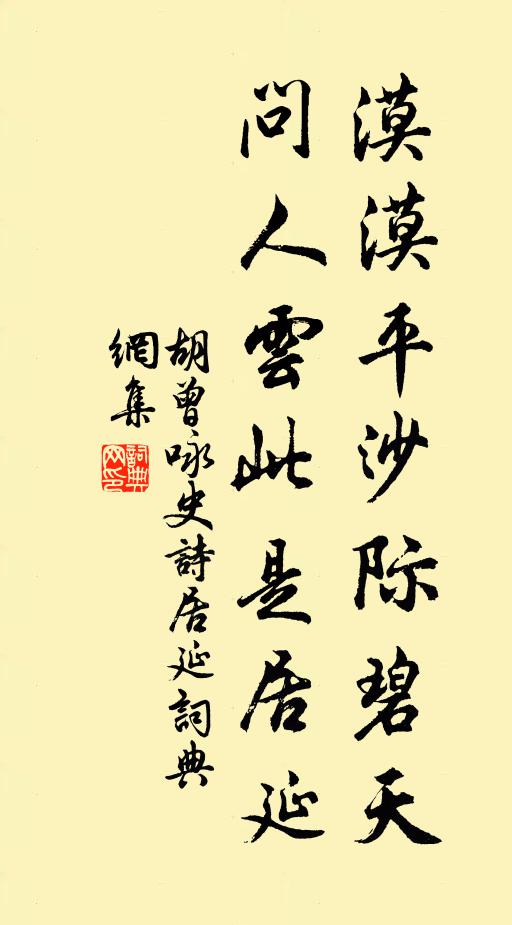 漠漠平沙际碧天
問人雲此是居延
胡曾咏史詩居延詞典
網集
詞典網印